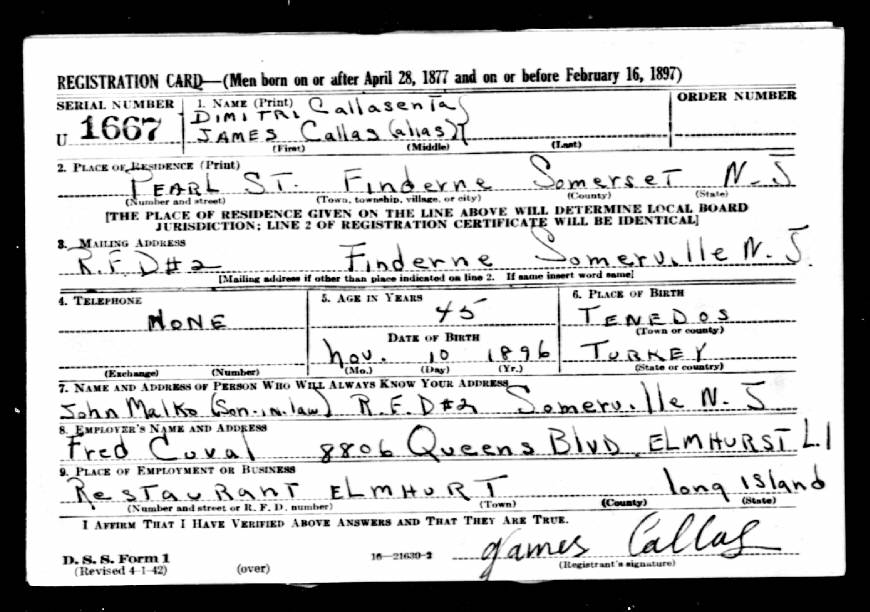 REGISTRATION CARD—(Men born on or after April 28, 1877 and on or before February 16, 1897)
SERIAL NUMBER 1. NAME (Print) ORDER NUMBER
DIMITRI Callasenta
U 1667 JAMES Callas (alias)
(First) (Middle) (Last)
2. PLACE OF RESIDENCE (Print)
PEARL ST. Finderne Somerset N. J
(Number and street) (Town, township, village, or city) (County) (State)
[THE PLACE OF RESIDENCE GIVEN ON THE LINE ABOVE WILL DETERMINE LOCAL BOARD
JURISDICTION; LINE 2 OF REGISTRATION CERTIFICATE WILL BE IDENTICAL]
3. MAILING ADDRESS
R.F.D#2 Finderne Somerville N. J.
[Mailing address if other than place indicated on line 2. If same insert word same]
4. TELEPHONE 5. AGE IN YEARS 6. PLACE OF BIRTH
45 TENEDOS
NONE (Town or county)
DATE OF BIRTH
Nov. 10 1896 TURKEY
(Exchange) (Number) (Mo.) (Day) (Yr.) (State or country)
7. NAME AND ADDRESS OF PERSON WHO WILL ALWAYS KNOW YOUR ADDRESS
John Malko (Son-in-law) R.F.D#2 Somerville N. J
8. EMPLOYER'S NAME AND ADDRESS
Fred Cuval 8806 Queens Blvd. ELMHURST L.I
9. PLACE OF EMPLOYMENT OR BUSINESS
RESTAURANT ELMHURT Long Island
(Number and street or R. F. D. number) (Town) (County) (State)
I AFFIRM THAT I HAVE VERIFIED ABOVE ANSWERS AND THAT THEY ARE TRUE.
James Callas
D. S. S. Form 1 16—21630-2 (Registrant's signature)
(Revised 4-1-42) (over)